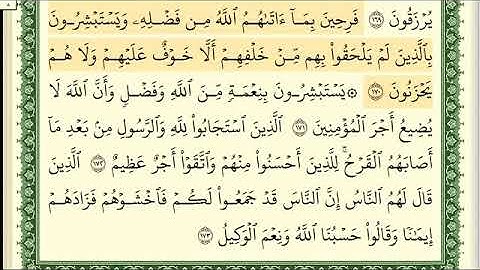 يُرْزَقُونَ ١٦٩ فَرِحِينَ بِمَآ ءَاتَىٰهُمُ ٱللَّهُ مِن فَضْلِهِۦ وَيَسْتَبْشِرُونَ
بِٱلَّذِينَ لَمْ يَلْحَقُوا۟ بِهِم مِّنْ خَلْفِهِمْ أَلَّا خَوْفٌ عَلَيْهِمْ وَلَا هُمْ
يَحْزَنُونَ ١٧٠ ۞ يَسْتَبْشِرُونَ بِنِعْمَةٍ مِّنَ ٱللَّهِ وَفَضْلٍ وَأَنَّ ٱللَّهَ لَا
يُضِيعُ أَجْرَ ٱلْمُؤْمِنِينَ ١٧١ ٱلَّذِينَ ٱسْتَجَابُوا۟ لِلَّهِ وَٱلرَّسُولِ مِنۢ بَعْدِ مَآ
أَصَابَهُمُ ٱلْقَرْحُ ۚ لِلَّذِينَ أَحْسَنُوا۟ مِنْهُمْ وَٱتَّقَوْا۟ أَجْرٌ عَظِيمٌ ١٧٢ ٱلَّذِينَ
قَالَ لَهُمُ ٱلنَّاسُ إِنَّ ٱلنَّاسَ قَدْ جَمَعُوا۟ لَكُمْ فَٱخْشَوْهُمْ فَزَادَهُمْ
إِيمَٰنًا وَقَالُوا۟ حَسْبُنَا ٱللَّهُ وَنِعْمَ ٱلْوَكِيلُ ١٧٣